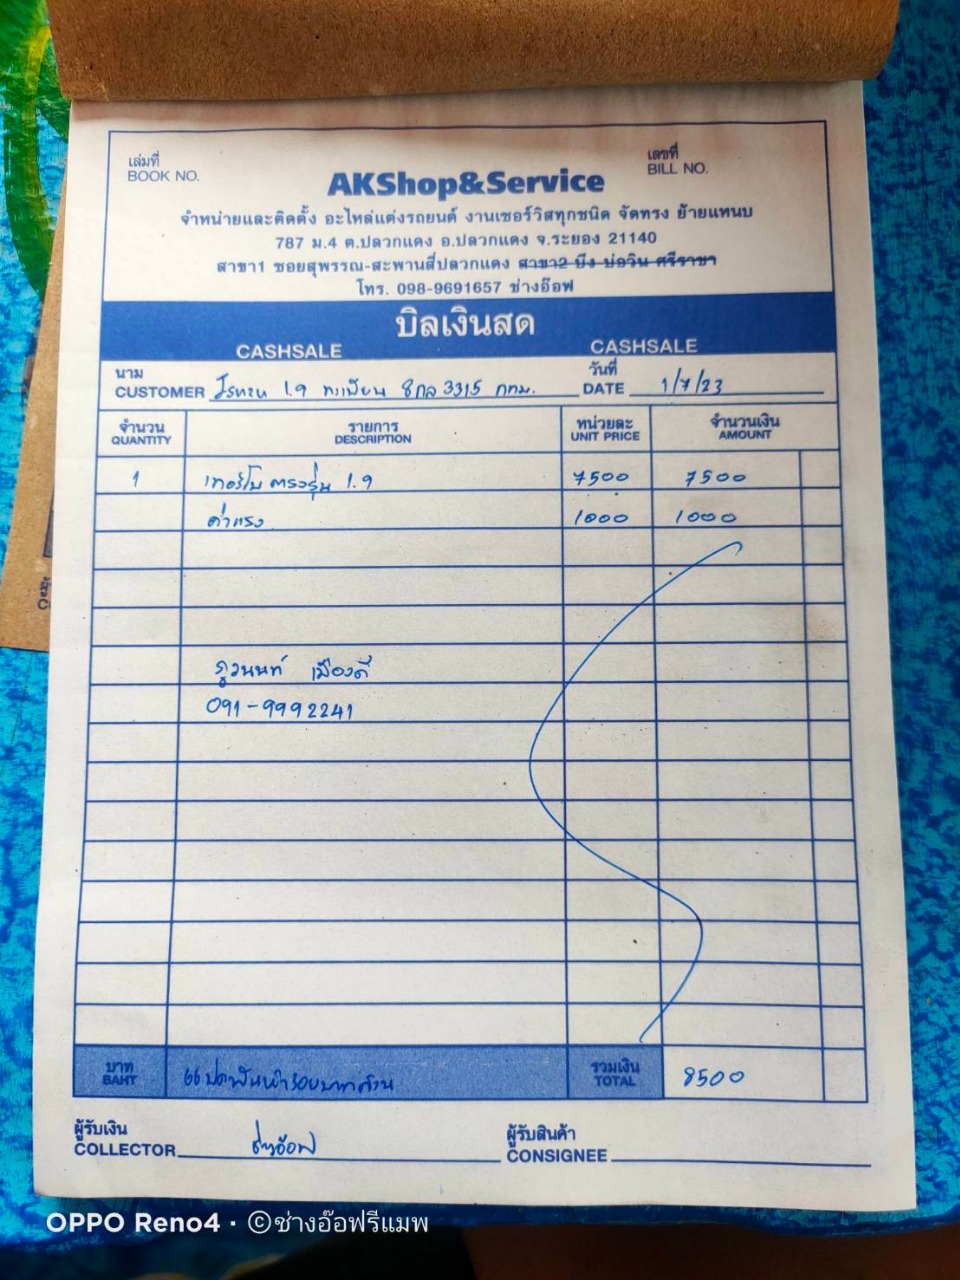 เล่มที่
BOOK NO.
เลขที่
BILL NO.
AKShop&Service
จำหน่ายและติดตั้ง อะไหล่แต่งรถยนต์ งานเซอร์วิสทุกชนิด จัดทรง ย้ายแหนบ
787 ม.4 ต.ปลวกแดง อ.ปลวกแดง จ.ระยอง 21140
สาขา1 ซอยสุพรรณ-สะพานสี่ปลวกแดง สาขา2 บึง บ่อวิน ศรีราชา
โทร. 098-9691657 ช่างอ๊อฟ
บิลเงินสด
CASHSALE CASHSALE
นาม
CUSTOMER 1.9 ทะเบียน 8กล 3315 กทม.
วันที่
DATE 1/7/23
จำนวน รายการ หน่วยละ จำนวนเงิน
QUANTITY DESCRIPTION UNIT PRICE AMOUNT
1 เทอร์โบ ตรงรุ่น 1.9 7500 7500
ค่าแรง 1000 1000
ภูวนนท์ เมืองดี
091-9992241
บาท
BAHT
แปดพันห้าร้อยบาทถ้วน
รวมเงิน
TOTAL
8500
ผู้รับเงิน
COLLECTOR ช่างอ๊อฟ
ผู้รับสินค้า
CONSIGNEE
OPPO Reno4 · ©ช่างอ๊อฟรีแมพ